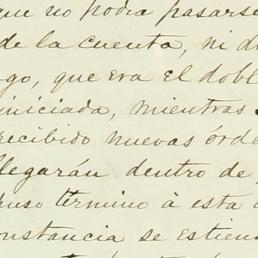 que no podia pasarse
de la cuenta, ni d
go, que era el dobl
iniciada, mientras
recibido nuevas órde
llegarán dentro de
puso término á esta
onstancia se estien